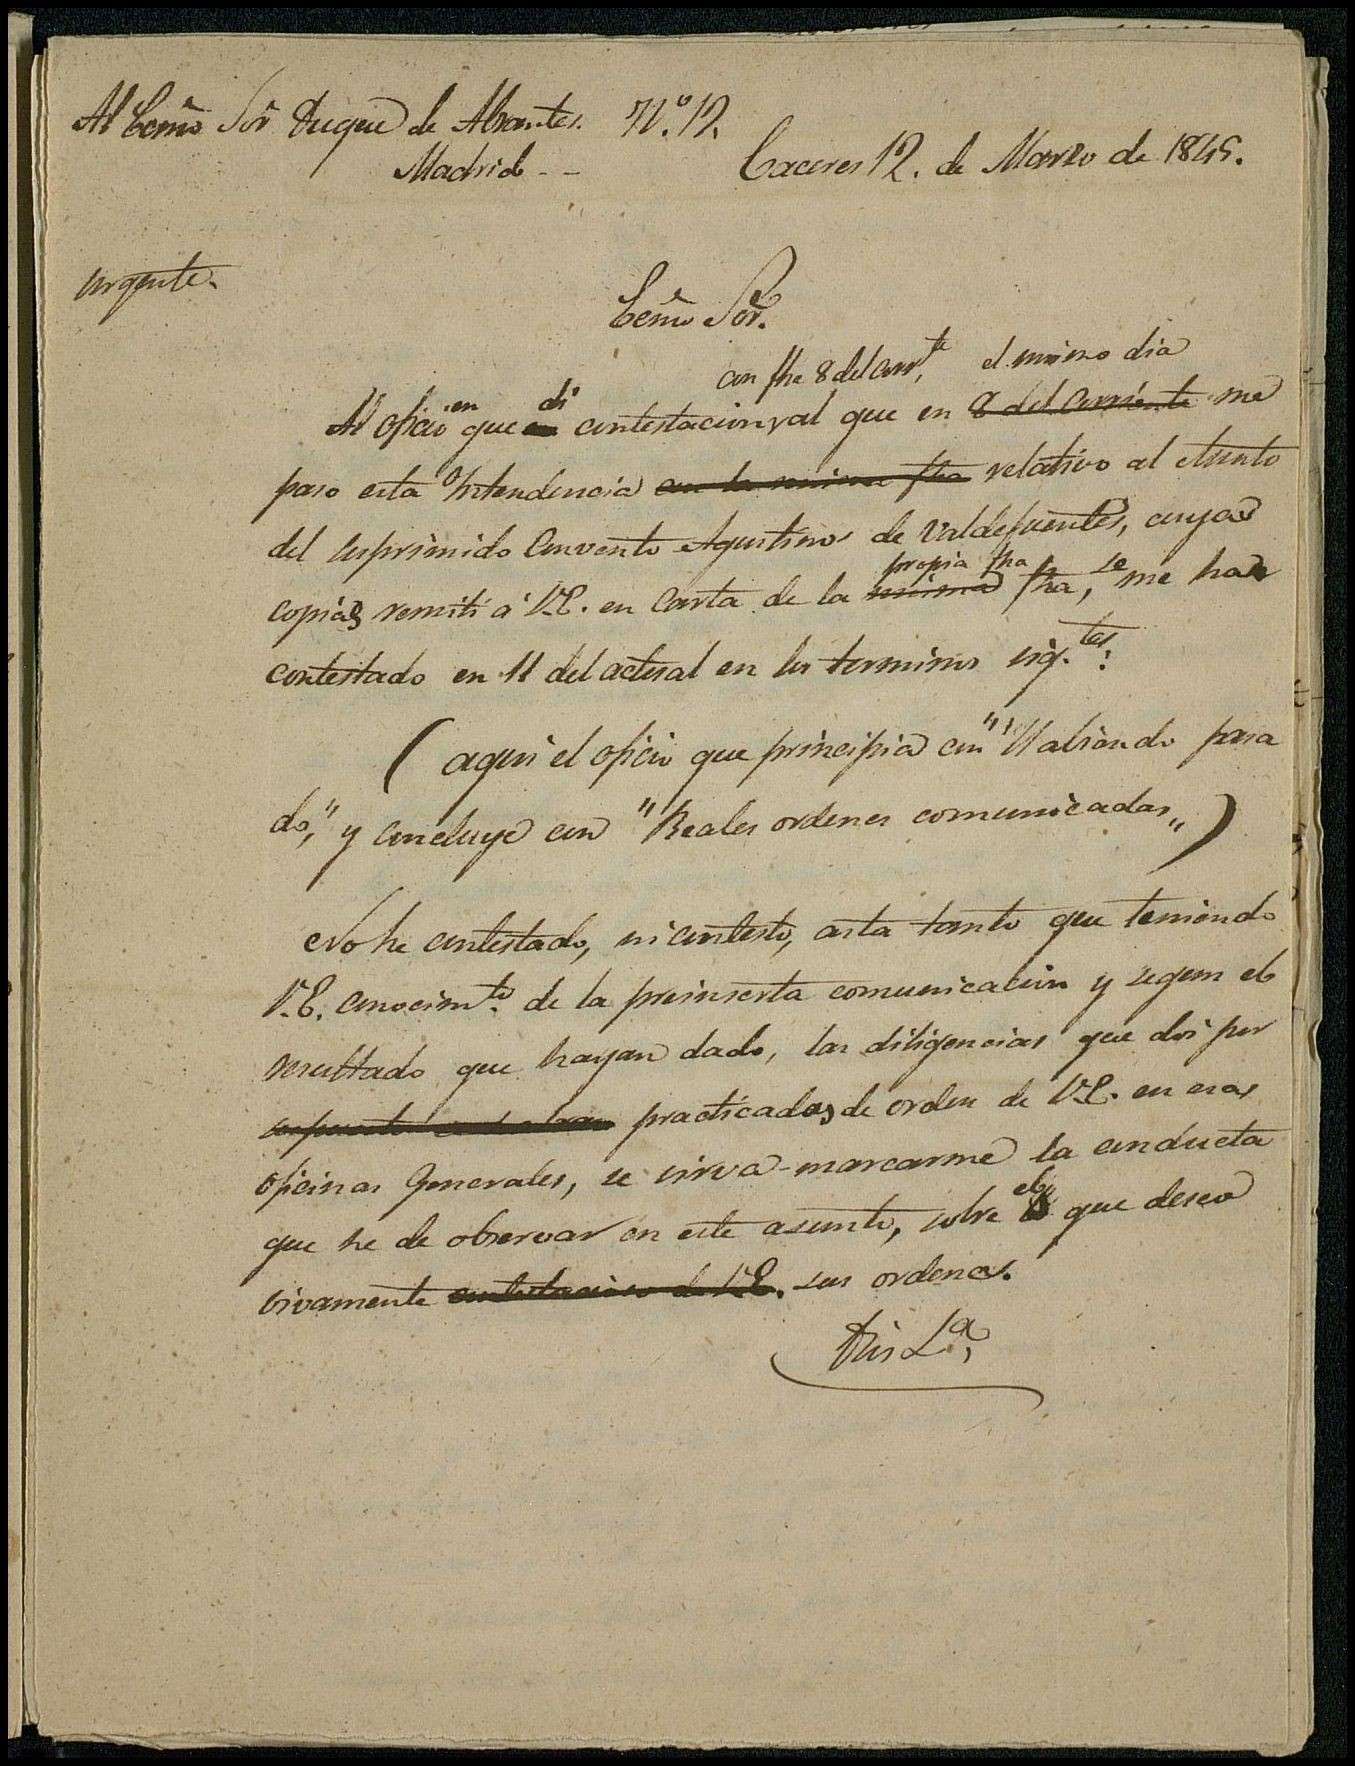 Al Ecmo Sor Duque de Abrantes. N.º 12.
Madrid - -
Caceres 12. de Marzo de 1845.
Urgente.
Ecmo Sor.
con fha 8 del corrte, el mismo dia
en di
Al oficio que contestacion, al que en 8 del corriente me
paso esta Intendencia en la misma fha relativo al Asunto
del suprimido Convento Agustinos de Valdefuentes, cuyas
propia fha se
copias remiti á V.E. en Carta de la misma fha, me ha
contestado en 11 del actual en los terminos sig.tes:
(aqui el oficio que principia con "Habiendo pasa
do," y concluye con "Reales ordenes comunicadas")
No he contestado, ni contesto, asta tanto que teniendo
V.E. conocim.to de la preinserta comunicacion y segun el
resultado que hayan dado, las diligencias que doi por
practicadas de orden de V.E. en esas
oficinas Generales, se sirva marcarme la conducta
que he de observar en este asunto, sobre el que desea
vivamente contestacion de V.E. sus ordenes.